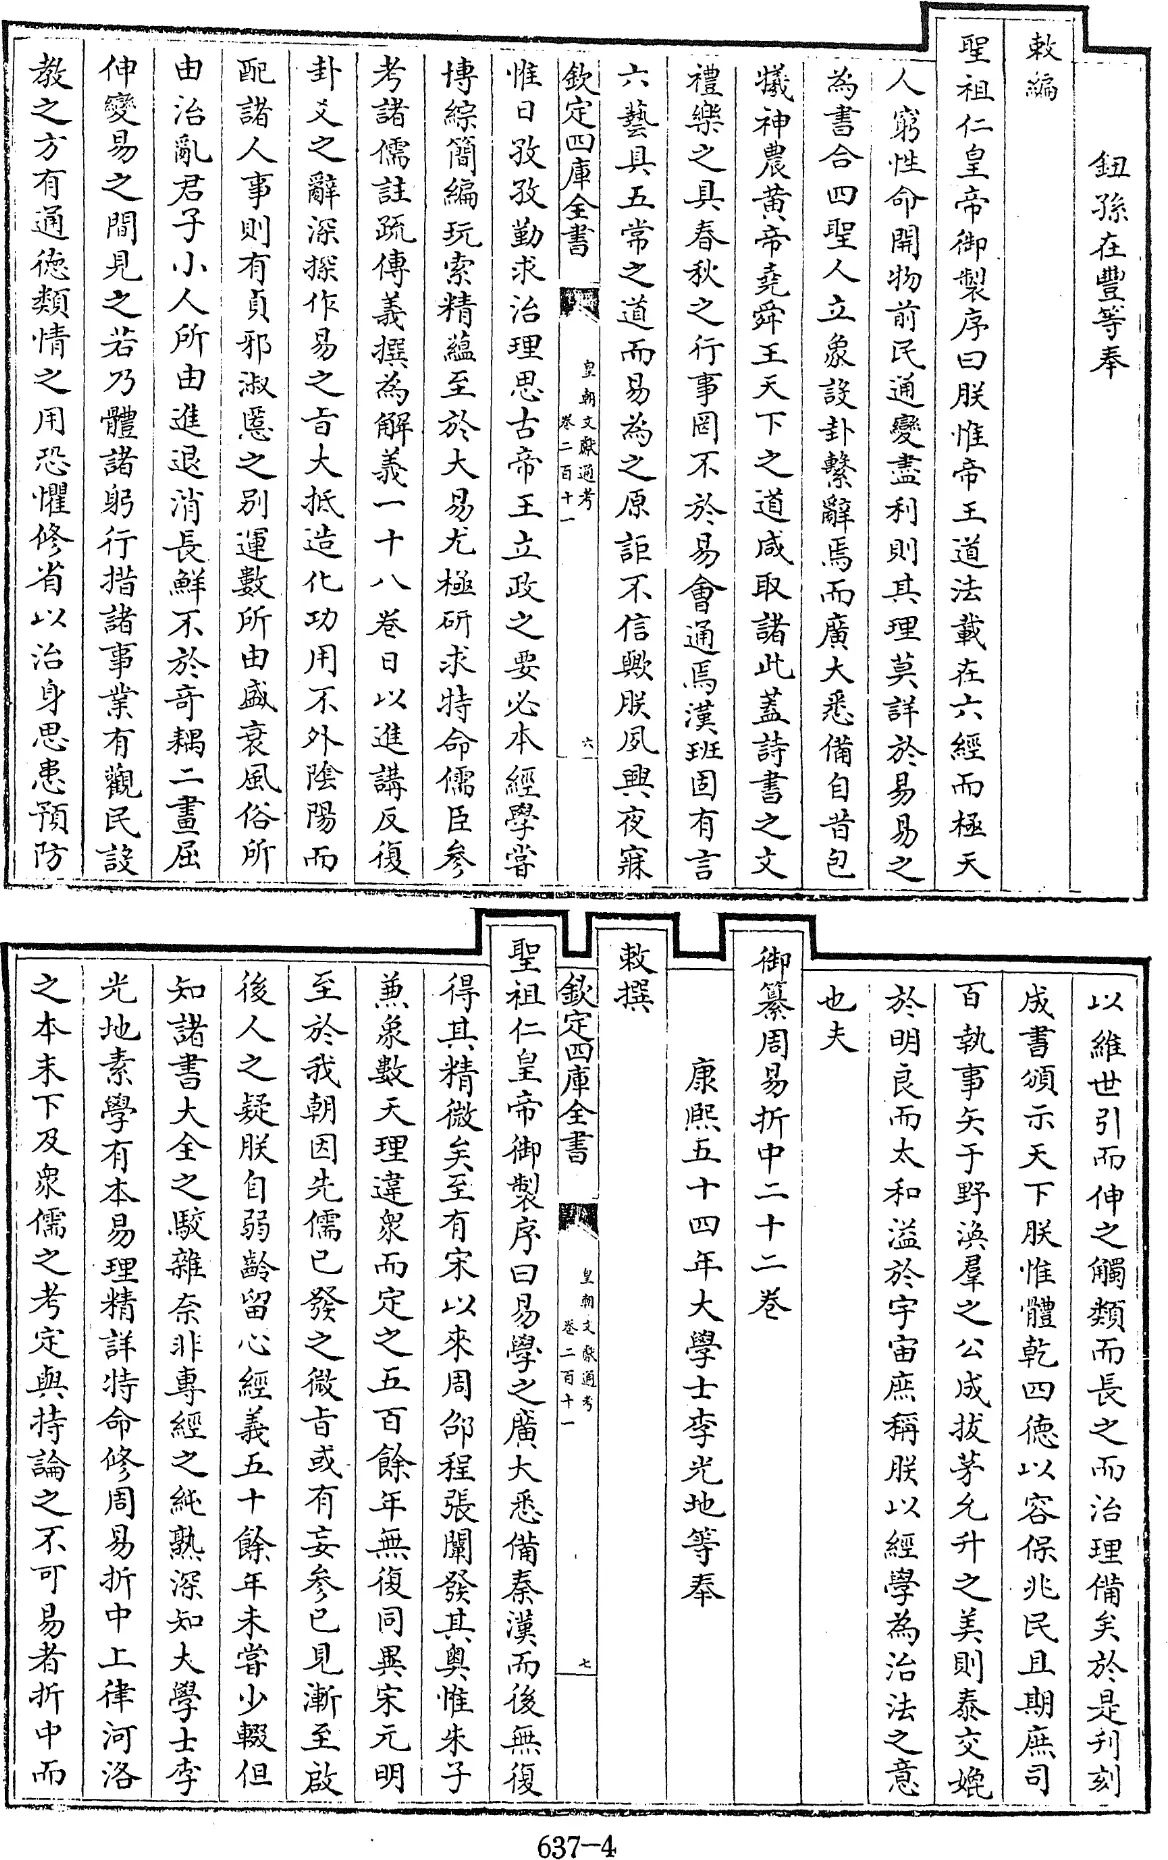 鈕孫在豐等奉
敕編
聖祖仁皇帝御製序曰朕惟帝王道法載在六經而極天
人窮性命開物前民通變盡利則其理莫詳於易易之
為書合四聖人立象設卦繫辭焉而廣大悉備自昔包
犧神農黃帝堯舜王天下之道咸取諸此蓋詩書之文
禮樂之具春秋之行事罔不於易會通焉漢班固有言
六藝具五常之道而易為之原詎不信歟朕夙興夜寐
欽定四庫全書
皇朝文獻通考
卷二百十一
六
惟日孜孜勤求治理思古帝王立政之要必本經學嘗
博綜簡編玩索精蘊至於大易尤極研求特命儒臣參
考諸儒註疏傳義撰為解義一十八卷日以進講反復
卦爻之辭深探作易之旨大抵造化功用不外陰陽而
配諸人事則有貞邪淑慝之別運數所由盛衰風俗所
由治亂君子小人所由進退消長鮮不於奇耦二畫屈
伸變易之間見之若乃體諸躬行措諸事業有觀民設
教之方有通德類情之用恐懼修省以治身思患預防
以維世引而伸之觸類而長之而治理備矣於是刊刻
成書頒示天下朕惟體乾四德以容保兆民且期庶司
百執事矢于野渙羣之公成拔茅允升之美則泰交媲
於明良而太和溢於宇宙庶稱朕以經學為治法之意
也夫
御纂周易折中二十二卷
康熙五十四年大學士李光地等奉
敕撰
欽定四庫全書
皇朝文獻通考
卷二百十一
七
聖祖仁皇帝御製序曰易學之廣大悉備秦漢而後無復
得其精微矣至有宋以來周邵程張闡發其奧惟朱子
兼象數天理違衆而定之五百餘年無復同異宋元明
至於我朝因先儒已發之微旨或有妄參已見漸至啟
後人之疑朕自弱齡留心經義五十餘年未嘗少輟但
知諸書大全之駮雜奈非專經之純熟深知大學士李
光地素學有本易理精詳特命修周易折中上律河洛
之本末下及衆儒之考定與持論之不可易者折中而
637-4